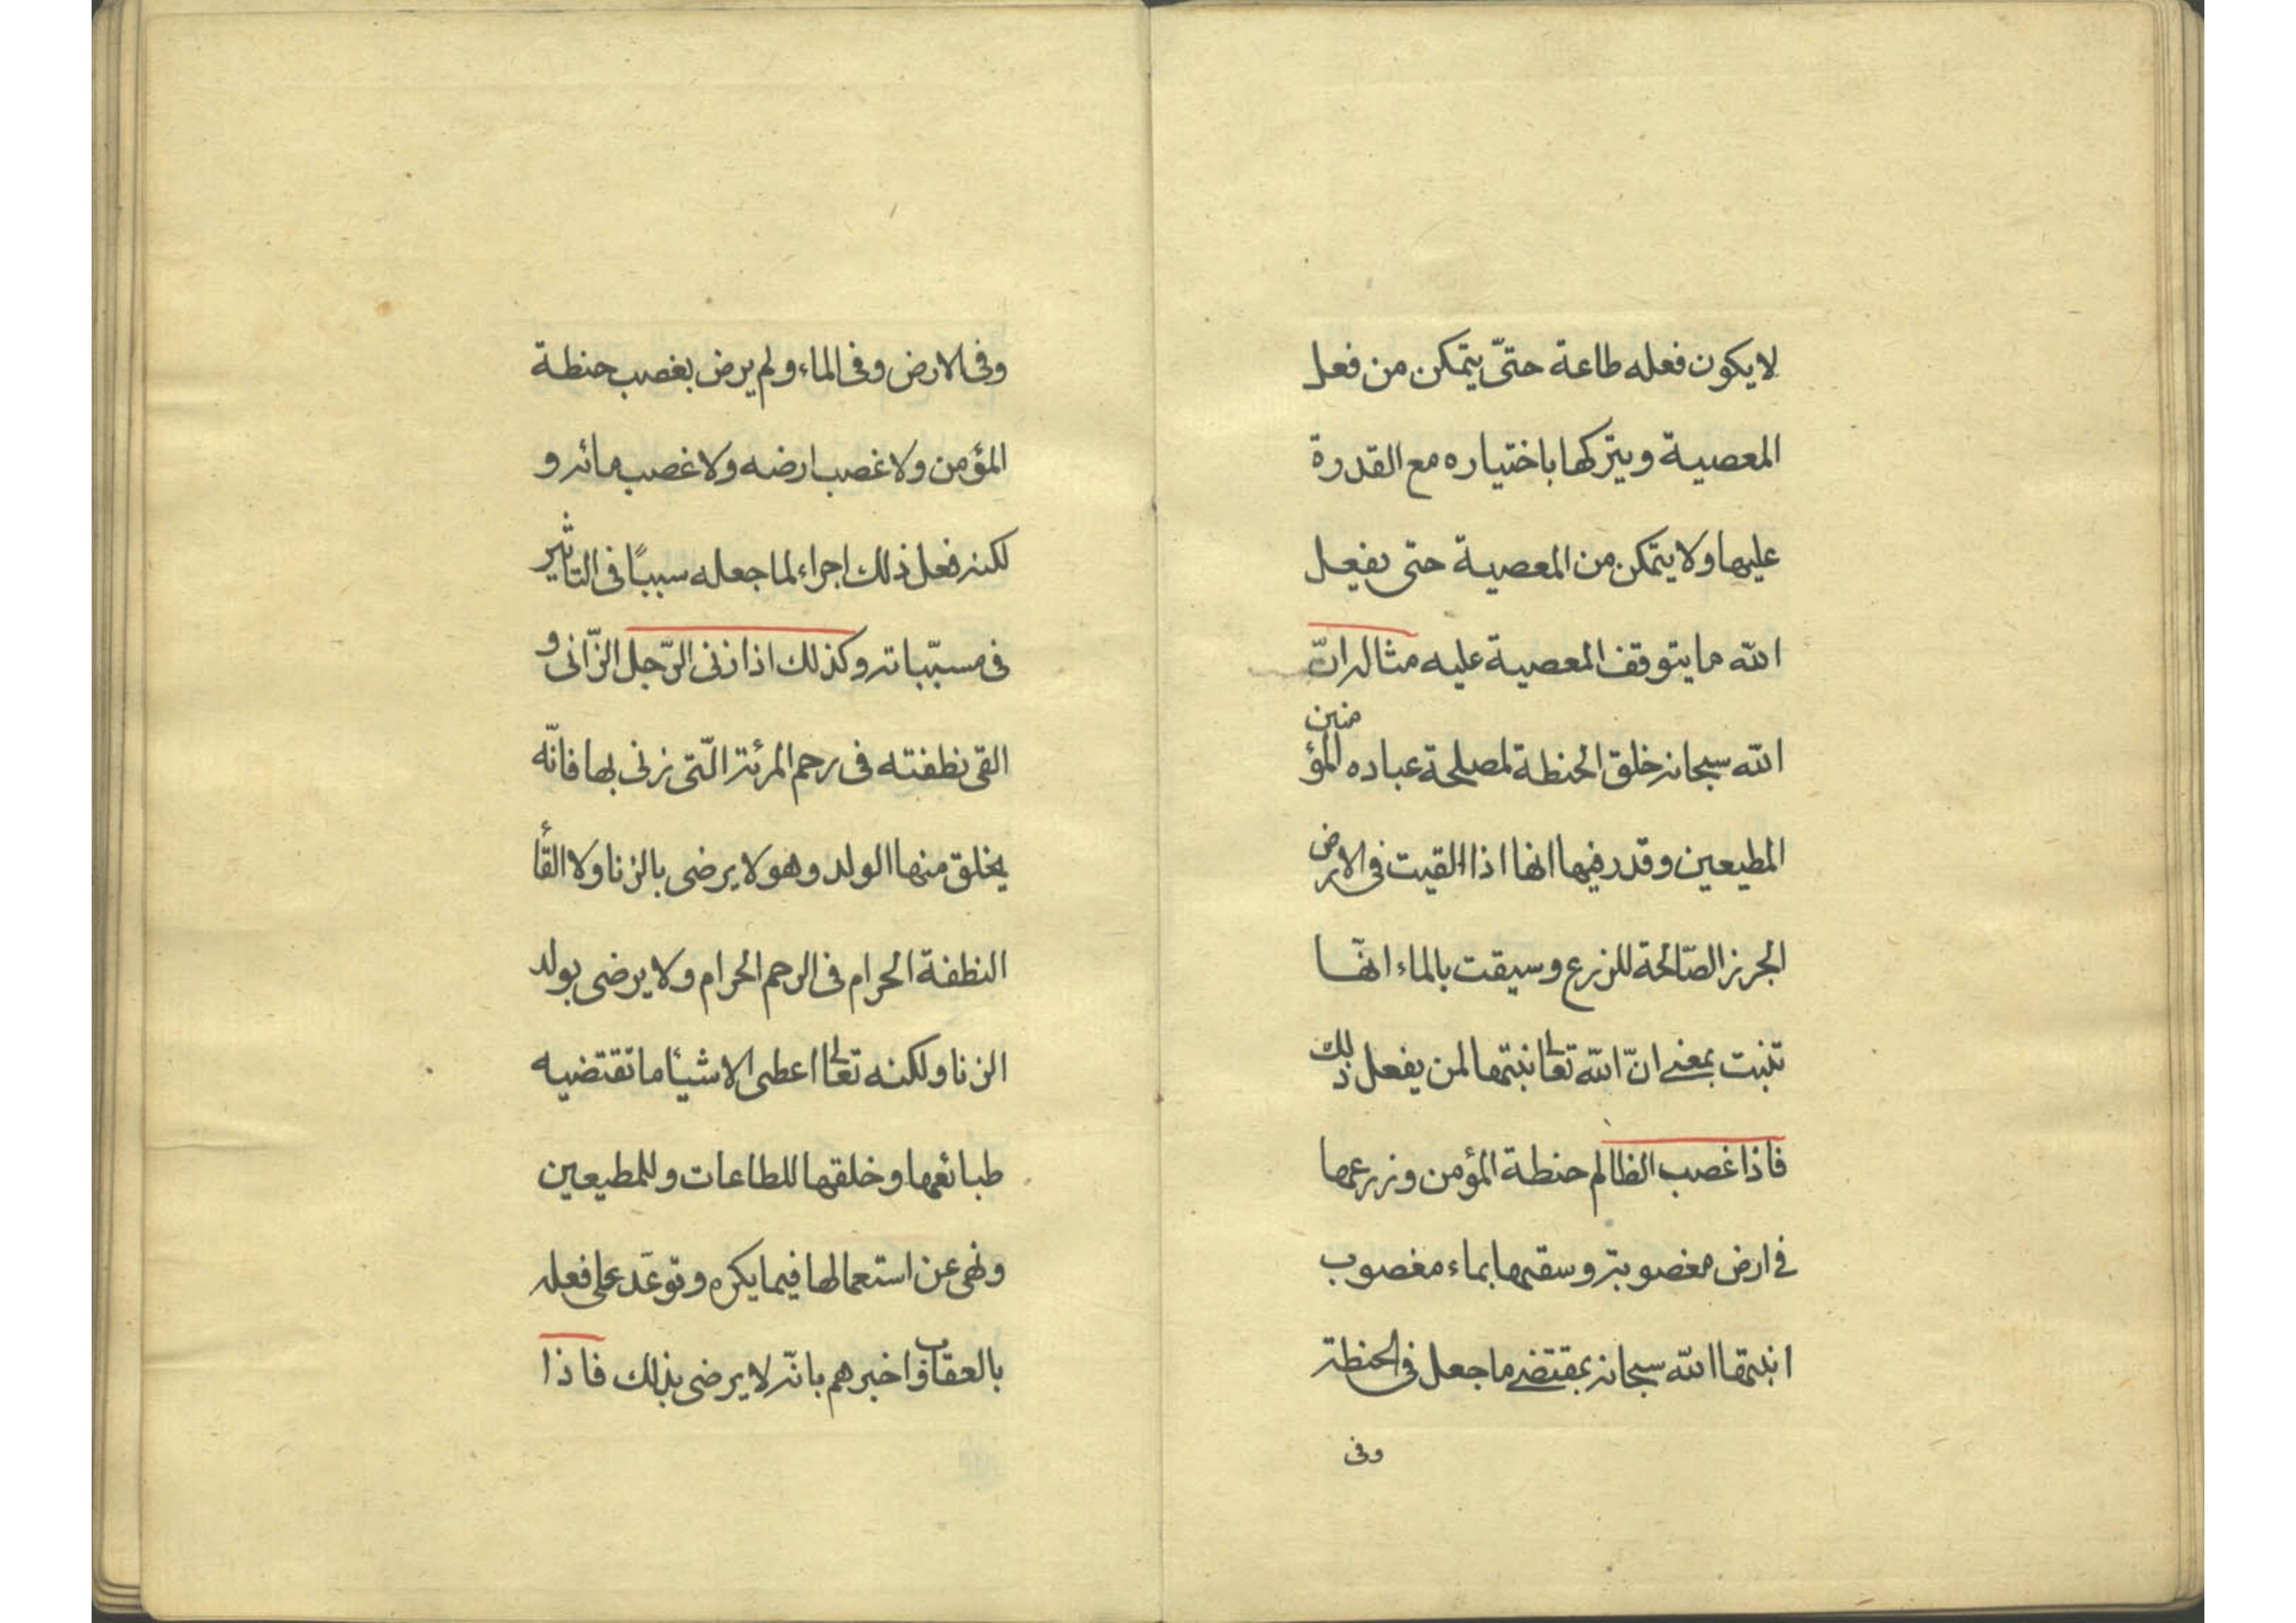 لا يكون فعله طاعة حتّى يتمكن من فعل
المعصية ويتركها باختياره مع القدرة
عليها ولا يتمكن من المعصية حتى يفعل
الله ما يتوقف المعصية عليه مثاله انّ
الله سبحانه خلق الحنطة لمصلحة عباده المؤمنين
المطيعين وقدر فيها انها اذا القيت فى الارض
الجرز الصّالحة للزرع وسيقت بالماء انّها
تنبت بمعنى انّ الله تعالى انبتها لمن يفعل ذلك
فاذا غصب الظالم حنطة المؤمن وزرعها
فى ارض مغصوبة وسقيها بماء مغصوب
انبتها الله سبحانه بمقتضى ما جعل فى الحنطة
وفى
وفى الارض وفى الماء ولم يرض بغصب حنطة
المؤمن ولا غصب ارضه ولا غصب مائه و
لكنه فعل ذلك اجراء لما جعله سببًا فى التاثير
فى مسبّباته وكذلك اذا زنى الرّجل الزّانى و
القى نطفته فى رحم المرئة الّتى زنى بها فانّه
يخلق منها الولد وهو لا يرضى بالزنا ولا القاء
النطفة الحرام فى الرحم الحرام ولا يرضى بولد
الزنا ولكنه تعالى اعطى الاشياء ما تقتضيه
طبائعها وخلقها للطاعات وللمطيعين
ونهى عن استعمالها فيما يكره وتوعّد على فعله
بالعقاب واخبرهم بانّه لا يرضى بذلك فاذا